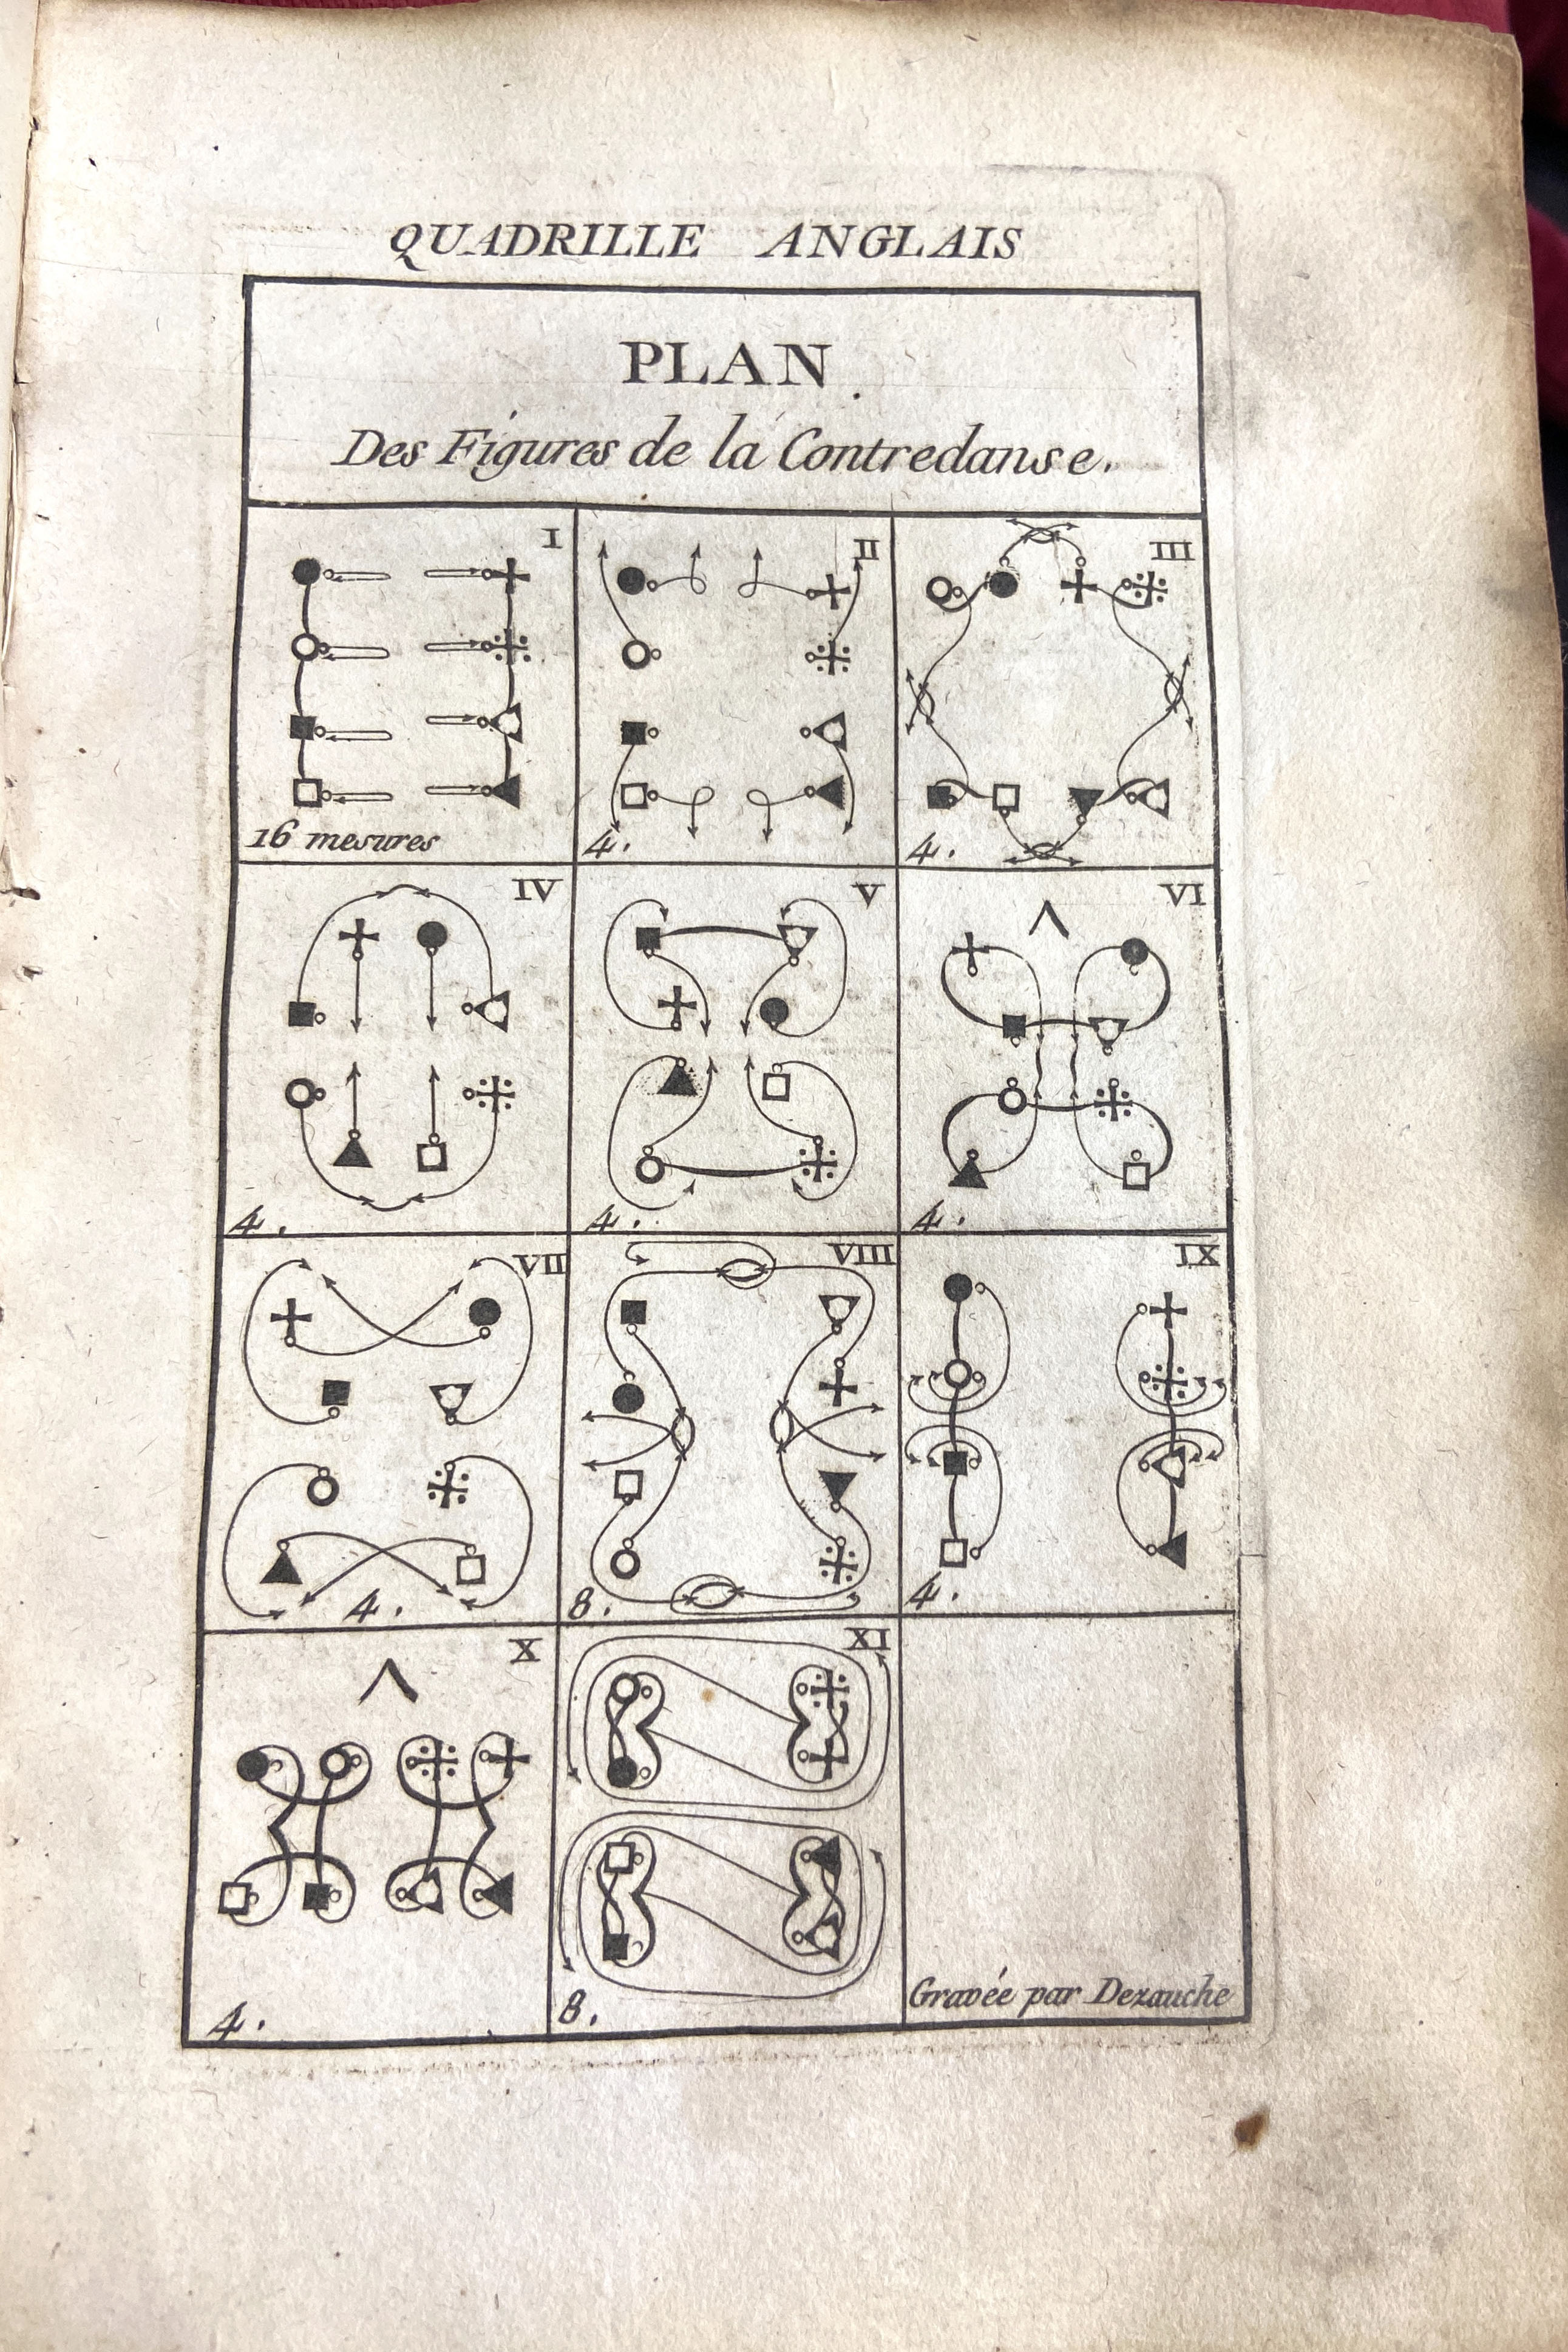 QUADRILLE ANGLAIS
PLAN
Des Figures de la Contredanse.
I
16 mesures
II
4.
III
4.
IV
4.
V
4.
VI
4.
VII
4.
VIII
8.
IX
4.
X
4.
XI
8.
Gravée par Dezauche